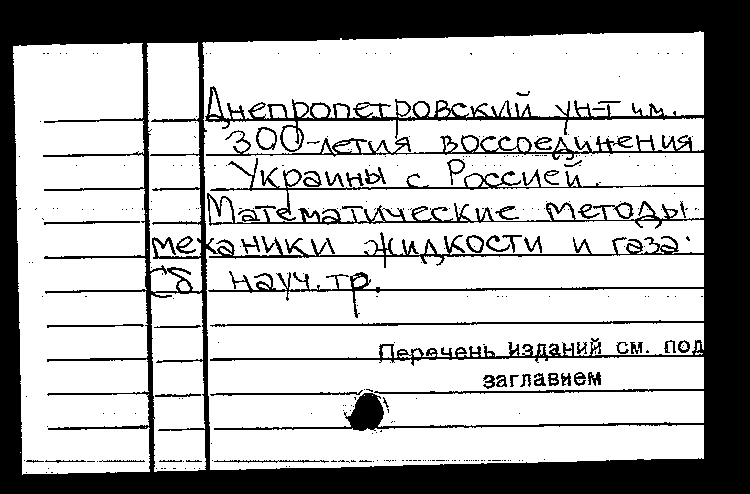 Днепропетровский ун-т им.
300-летия воссоединения
Украины с Россией.
Математические методы
механики жидкости и газа.
Сб науч. тр.
Перечень изданий см. под
заглавием